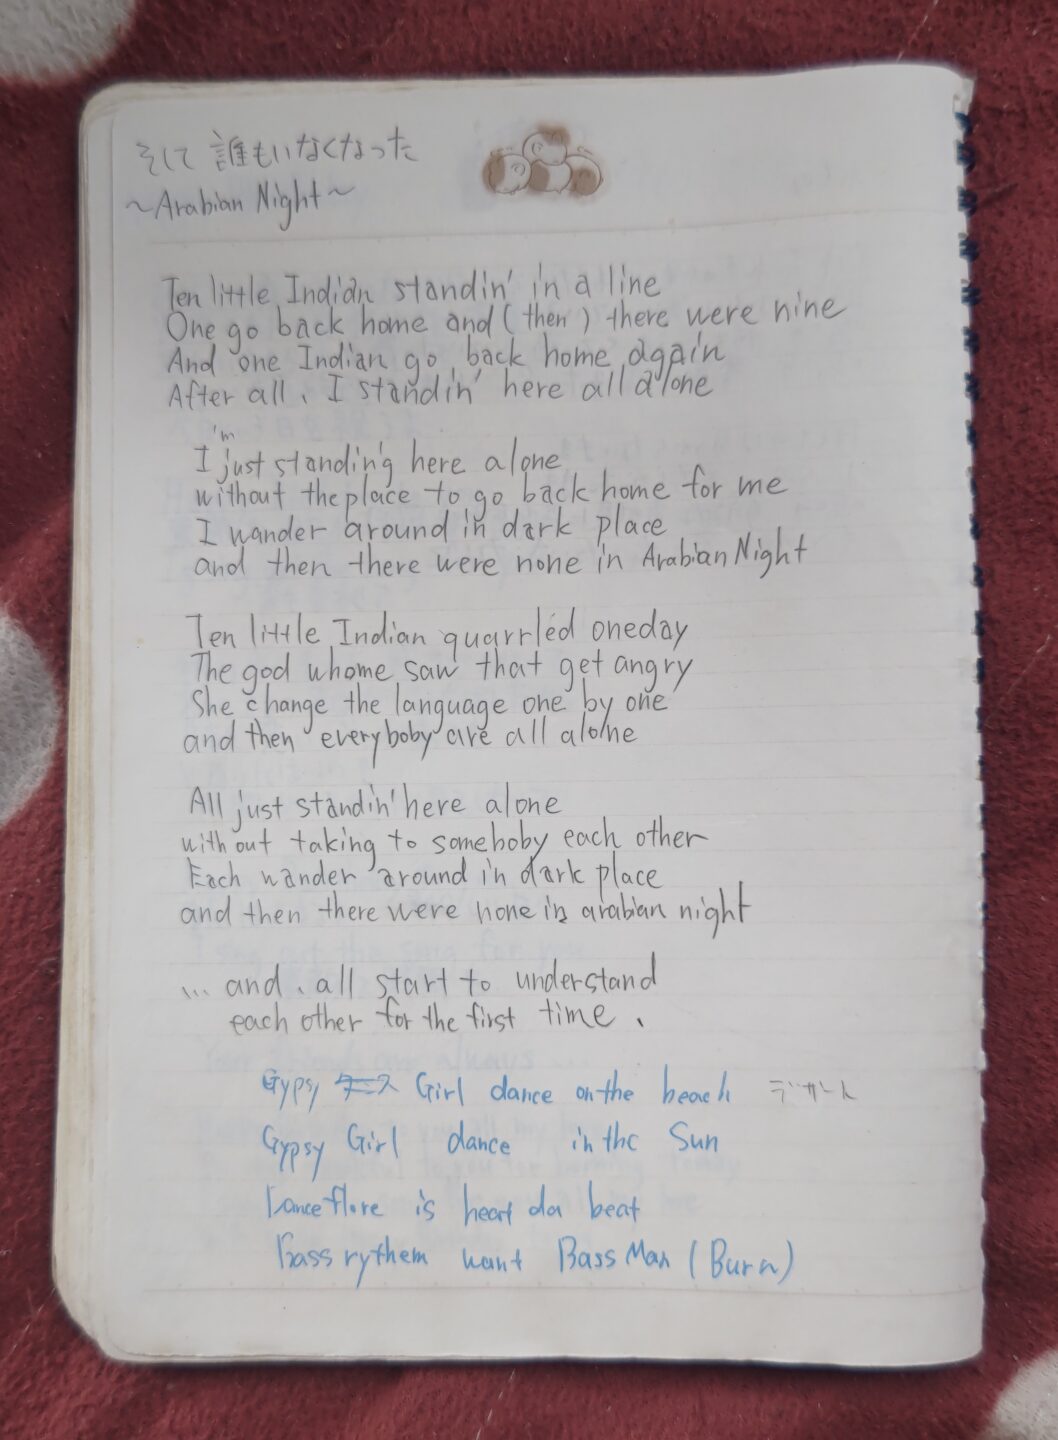 そして 誰もいなくなった
～Arabian Night～
Ten little Indian standin' in a line
One go back home and ( then ) there were nine
And one Indian go back home again
After all、I standin' here all alone
'm
I just standing here alone
without the place to go back home for me
I wander around in dark place
and then there were none in Arabian Night
Ten little Indian quarrled oneday
The god whome saw that get angry
She change the language one by one
and then everyboby are all alone
All just standin' here alone
without taking to someboby each other
Each wander around in dark place
and then there were none in arabian night
... and、all start to understand
each other for the first time、
Gypsy Girl dance on the beach
Gypsy Girl dance in the Sun
Dance flore is heart da beat
Bass rythem want Bass Man (Burn)